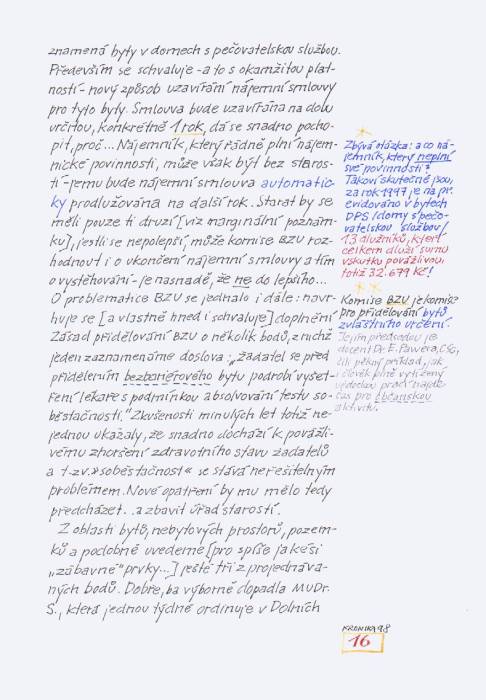 znamená byty v domech s pečovatelskou službou.
Především se schvaluje - a to s okamžitou plat-
ností - nový způsob uzavírání nájemní smlouvy
pro tyto byty. Smlouva bude uzavírána na dobu
určitou, konkrétně 1 rok, dá se snadno pocho-
pit, proč... Nájemník, který řádně plní nájem-
nické povinnosti, může však být bez staros-
ti - jemu bude nájemní smlouva automatic-
ky prodlužována na další rok. Starat by se
měli pouze ti druzí [viz marginální poznám-
ku], jestli se nepolepší, může komise BZU roz-
hodnout i o ukončení nájemní smlouvy a tím
o vystěhování - je nasnadě, že ne do lepšího...
O problematice BZU se jednalo i dále: navr-
huje se [a vlastně hned i schvaluje] doplnění
Zásad přidělování BZU o několik bodů, z nichž
jeden zaznamenáme doslova: „žadatel se před
přidělením bezbariérového bytu podrobí vyšet-
ření lékaře s podmínkou absolvování testu so-
běstačnosti." Zkušenosti minulých let totiž ne-
jednou ukázaly, že snadno dochází k povážli-
vému zhoršení zdravotního stavu žadatelů
a t.zv. »soběstačnost« se stává neřešitelným
problémem. Nové opatření by mu mělo tedy
předcházet.. a zbavit úřad starostí.
Z oblasti bytů, nebytových prostorů, pozem-
ků a podobně uvedeme [pro spíše jakési
„zábavné" prvky...] ještě tři z projednáva-
ných bodů. Dobře, ba výborně dopadla MUDr.
S., která jednou týdně ordinuje v Dolních
Zbývá otázka: a co ná-
jemník, který neplní
své povinnosti?
Takoví skutečně jsou,
za rok 1997 je na př.
evidováno v bytech
DPS [domy s pečo-
vatelskou službou]
13 dlužníků, kteří
celkem dluží sumu
vskutku povážlivou,
totiž 32.679 Kč!
Komise BZU je komisí
pro přidělování bytů
zvláštního určení.
Jejím předsedou je
docent Dr. E. Pawera, CSc,
člověk plně vytížený
vědeckou prací najde
čas pro občanskou
aktivitu.
KRONIKA 98
16